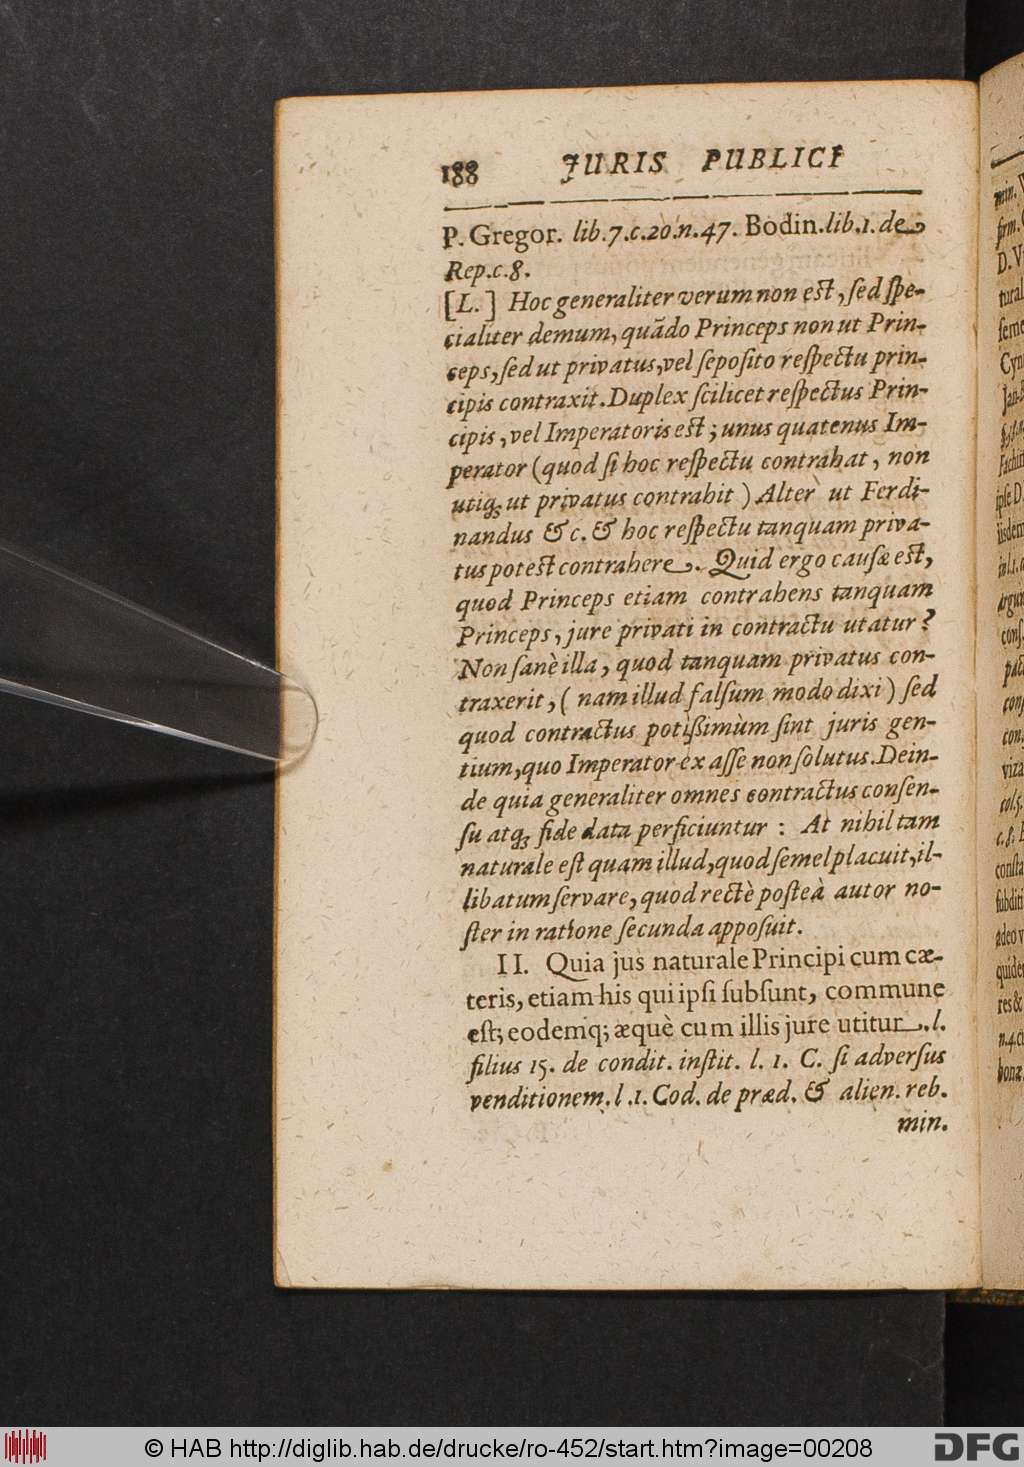 188 JURIS PUBLICI
P. Gregor. lib.7.c.20.n.47. Bodin.lib.1. de
Rep.c.8.
[L.] Hoc generaliter verum non est, sed spe-
cialiter demum, quãdo Princeps non ut Prin-
ceps, sed ut privatus, vel seposito respectu prin-
cipis contraxit. Duplex scilicet respectus Prin-
cipis, vel Imperatoris est; unus quatenus Im-
perator (quod si hoc respectu contrahat, non
utiq; ut privatus contrahit) Alter ut Ferdi-
nandus &c. & hoc respectu tanquam priva-
tus potest contrahere. Quid ergo causæ est,
quod Princeps etiam contrahens tanquam
Princeps, jure privati in contractu utatur?
Non sanè illa, quod tanquam privatus con-
traxerit, (nam illud falsum modo dixi) sed
quod contractus potißimùm sint juris gen-
tium, quo Imperator ex asse non solutus. Dein-
de quia generaliter omnes contractus consen-
su atq; fide data perficiuntur: At nihil tam
naturale est quam illud, quod semel placuit, il-
libatum servare, quod rectè posteà autor no-
ster in ratione secunda apposuit.
II. Quia jus naturale Principi cum cæ-
teris, etiam his qui ipsi subsunt, commune
est; eodemq; æquè cum illis jure utitur. l.
filius 15. de condit. instit. l. 1. C. si adversus
venditionem. l.1. Cod. de præd. & alien. reb.
min.
min.
firm.
D.
tural
seme
Cyn
ipse D.
iisdem
cons.
con.
viza
col.5.
c.8.
consta
subditi
adeo
quide
res &
n.4.
bonæ
© HAB http://diglib.hab.de/drucke/ro-452/start.htm?image=00208
DFG